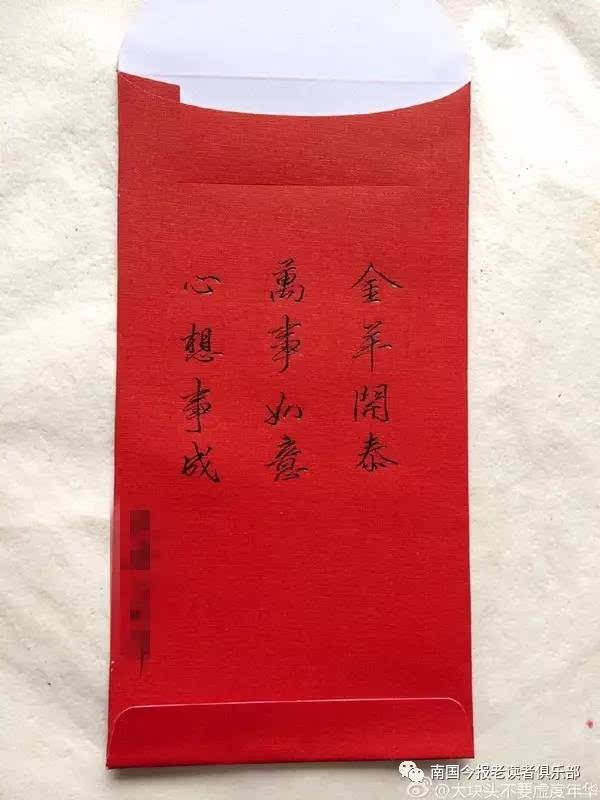 金羊開泰
萬事如意
心想事成
南国今报老读者俱乐部
@大块头不要虚度年华